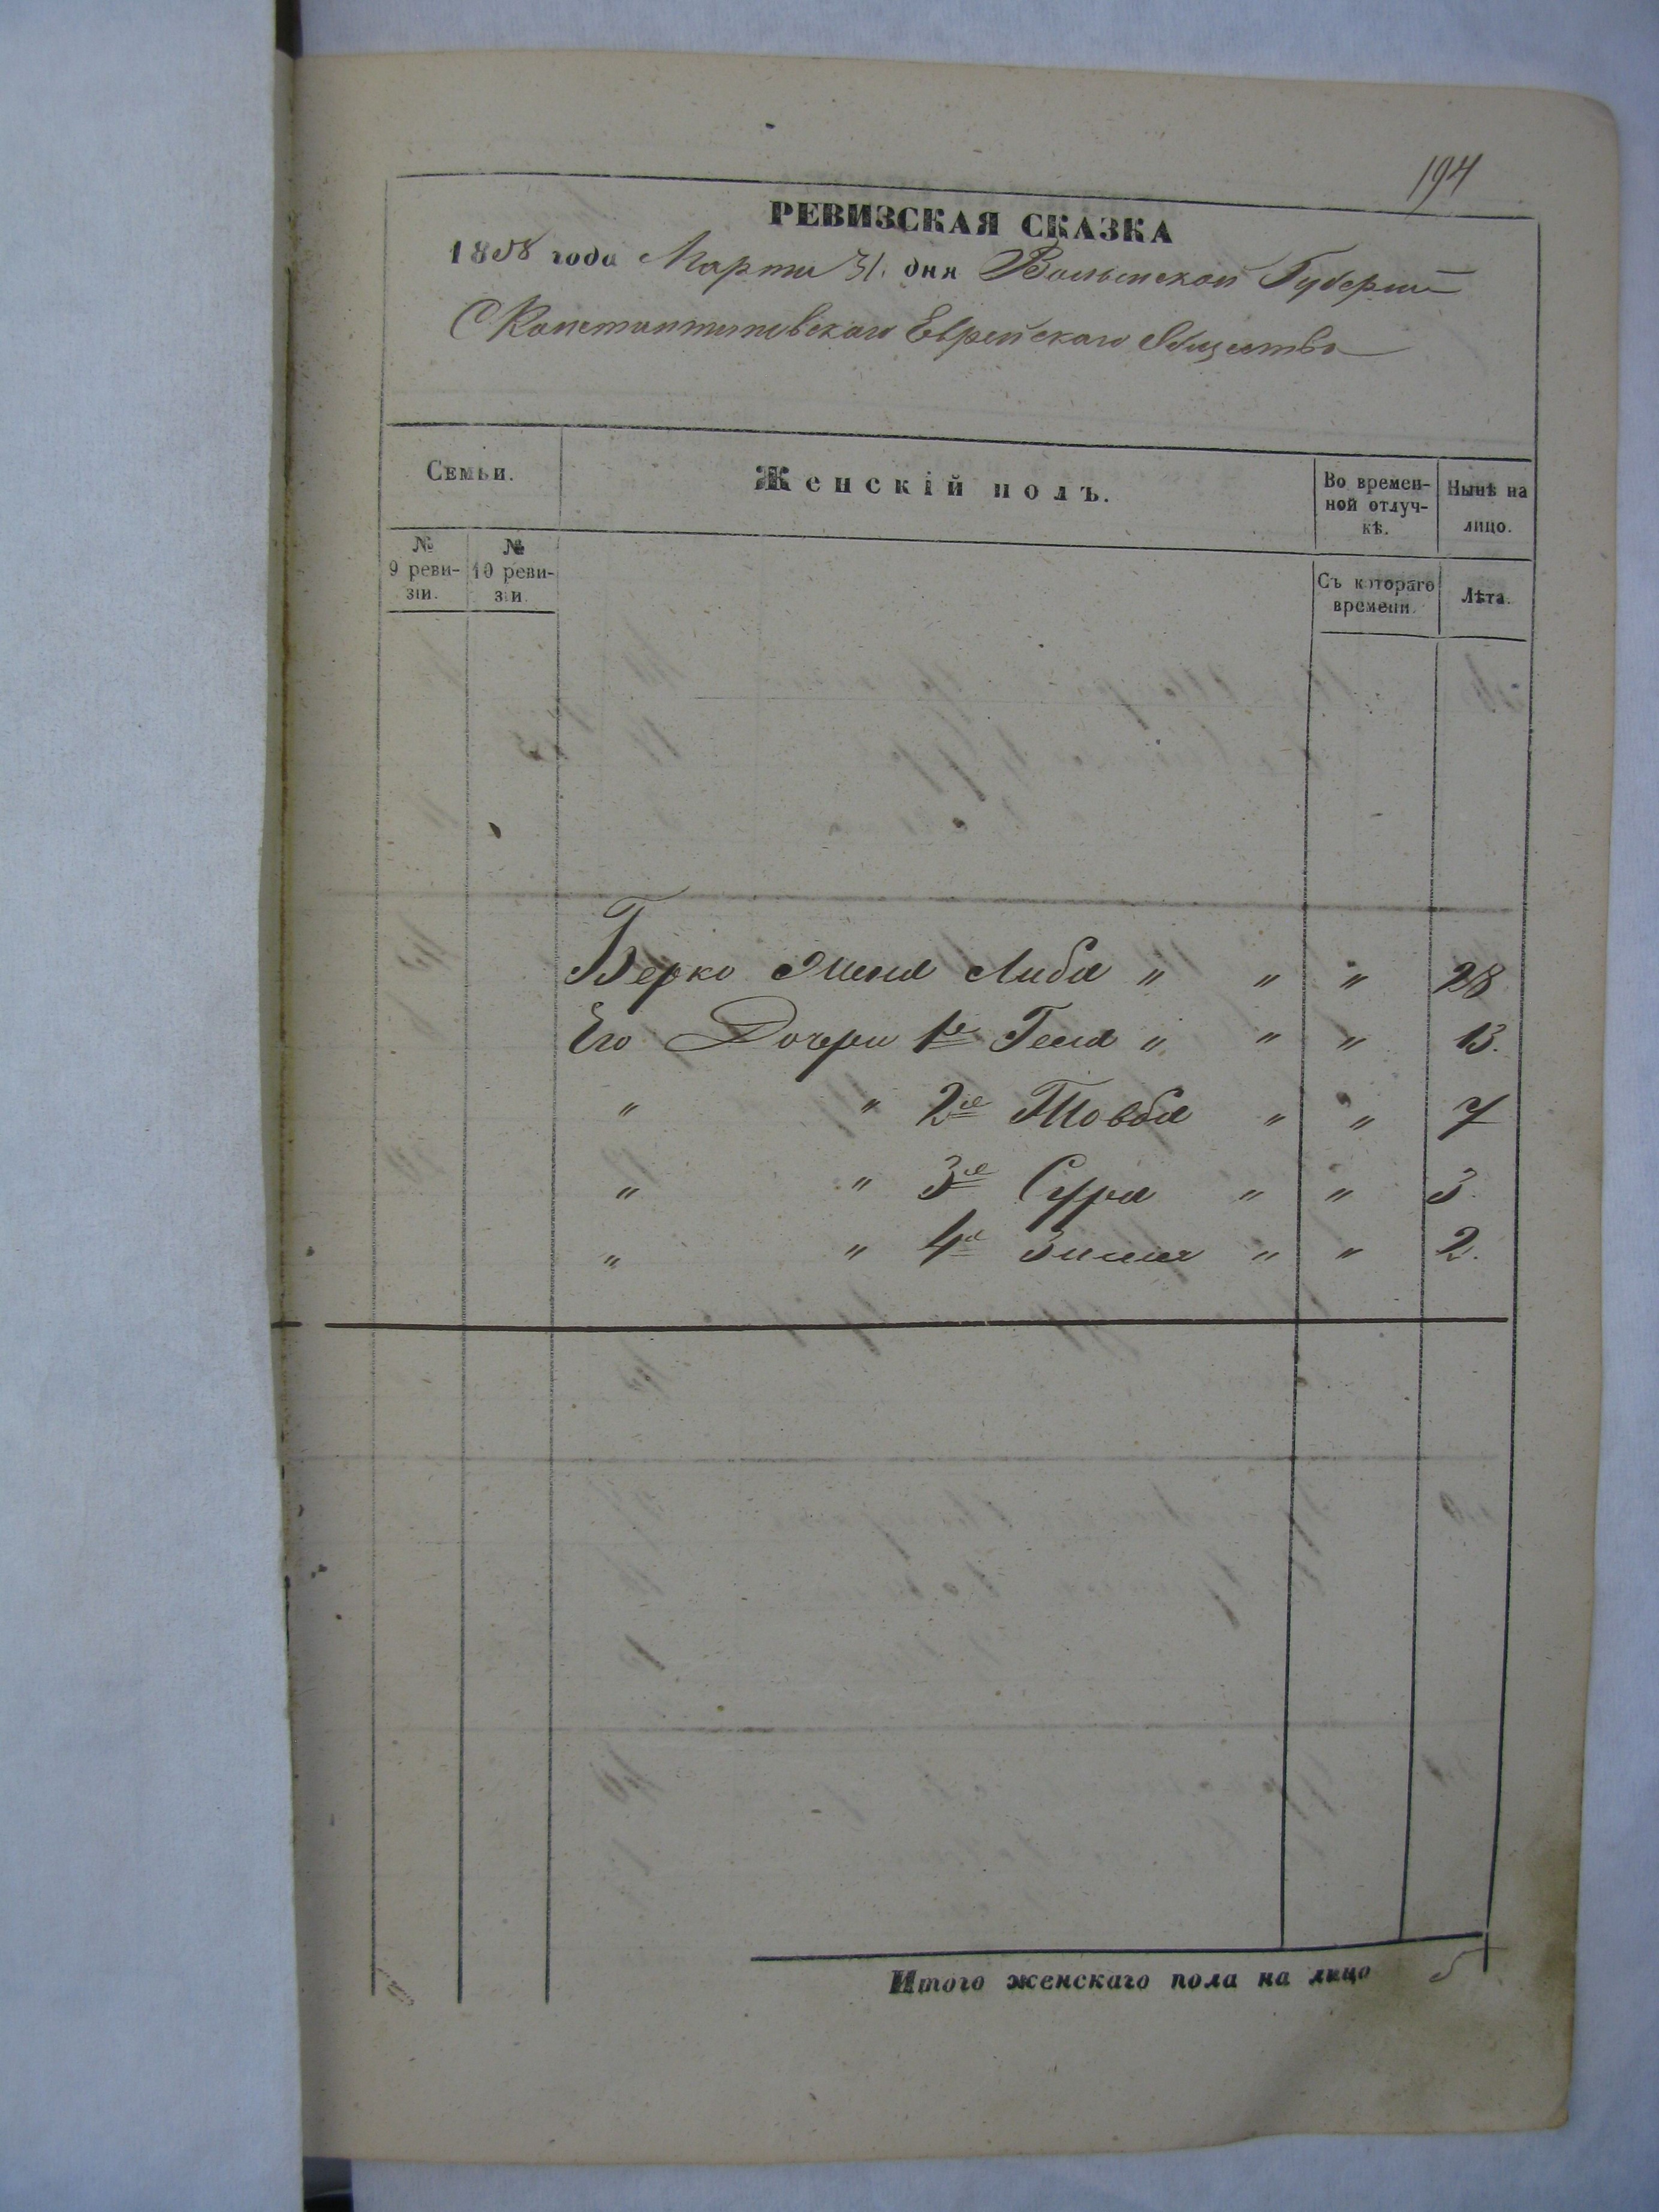 194
РЕВИЗСКАЯ СКАЗКА
1858 года Марта 31. дня Волынской Губернии
С Константиновскаго Еврейскаго Общества
Семьи.
Женскій полъ.
Во времен-
ной отлуч-
кѣ.
Нынѣ на
лицо.
№
9 реви-
зіи.
№
10 реви-
зіи.
Съ котораго
времени.
Лѣта.
Берко Жена Либа " " " 28
Его Дочери 1я Геня " " " 13.
" " 2я Товба " " 7
" " 3я Сура " " 3.
" " 4я " " 2.
Итого женскаго пола на лицо 5